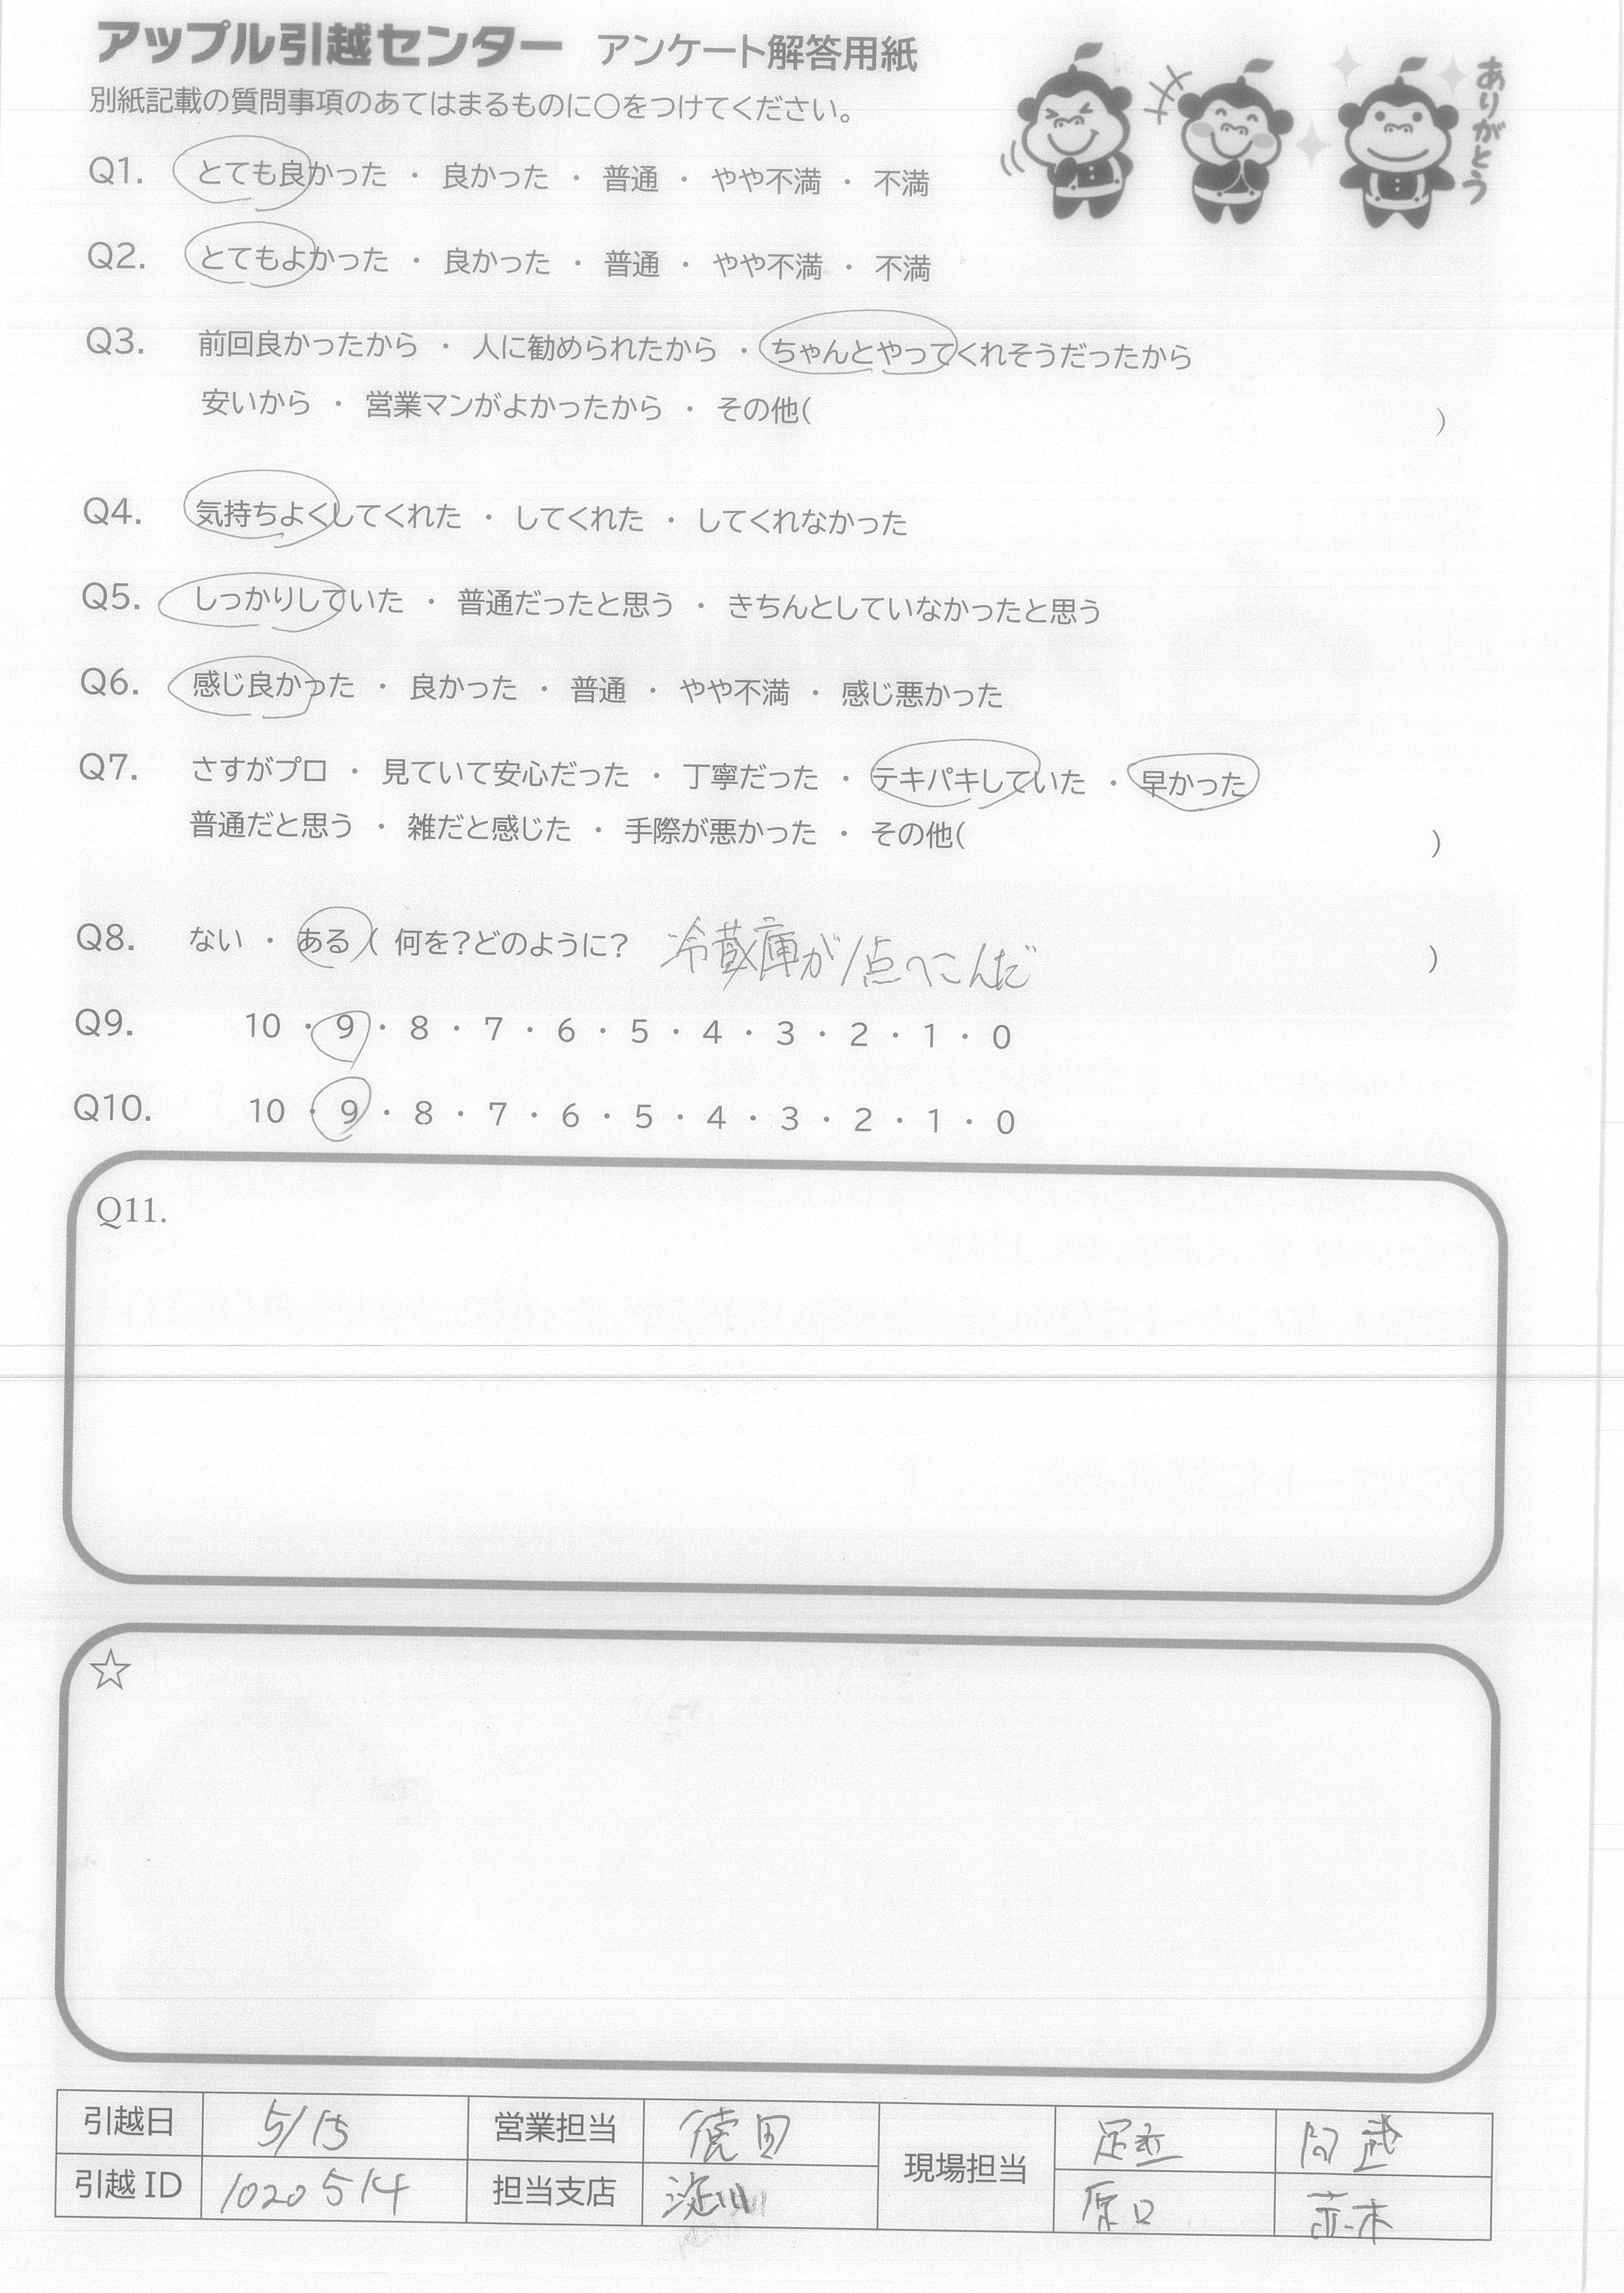 アップル引越センター アンケート解答用紙
ありがとう
別紙記載の質問事項のあてはまるものに○をつけてください。
Q1. とても良かった ・ 良かった ・ 普通 ・ やや不満 ・ 不満
Q2. とてもよかった ・ 良かった ・ 普通 ・ やや不満 ・ 不満
Q3. 前回良かったから ・ 人に勧められたから ・ ちゃんとやってくれそうだったから
安いから ・ 営業マンがよかったから ・ その他( )
Q4. 気持ちよくしてくれた ・ してくれた ・ してくれなかった
Q5. しっかりしていた ・ 普通だったと思う ・ きちんとしていなかったと思う
Q6. 感じ良かった ・ 良かった ・ 普通 ・ やや不満 ・ 感じ悪かった
Q7. さすがプロ ・ 見ていて安心だった ・ 丁寧だった ・ テキパキしていた ・ 早かった
普通だと思う ・ 雑だと感じた ・ 手際が悪かった ・ その他( )
Q8. ない ・ ある ( 何を?どのように? 冷蔵庫が1点へこんだ )
Q9. 10 ・ 9 ・ 8 ・ 7 ・ 6 ・ 5 ・ 4 ・ 3 ・ 2 ・ 1 ・ 0
Q10. 10 ・ 9 ・ 8 ・ 7 ・ 6 ・ 5 ・ 4 ・ 3 ・ 2 ・ 1 ・ 0
Q11.
☆
引越日 5/15 営業担当 徳田 現場担当 足立
引越 ID 1020514 担当支店 淀川 原口